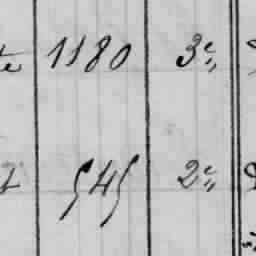 te 1180 3e
t 545 2e